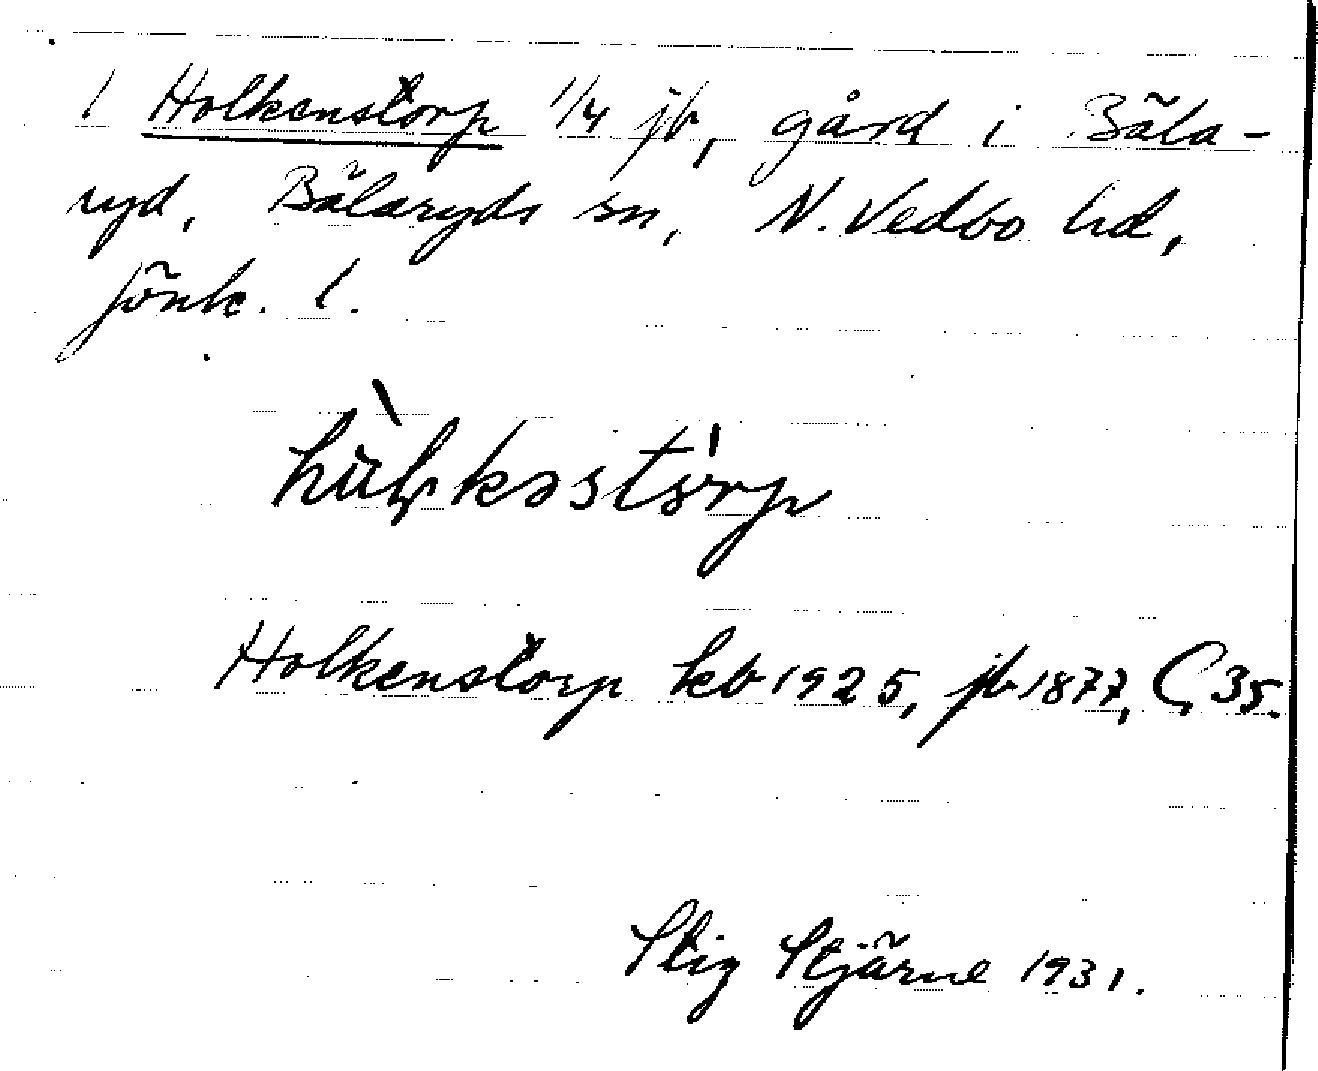 1 Holkenstorp 1/4 jb, gård i Bäla-
ryd, Bälaryds sn, N. Vedbo hd,
Jönk. l.
Holkenstorp kb 1925, jb 1877, C, 35.
Stig Stjärne 1931.